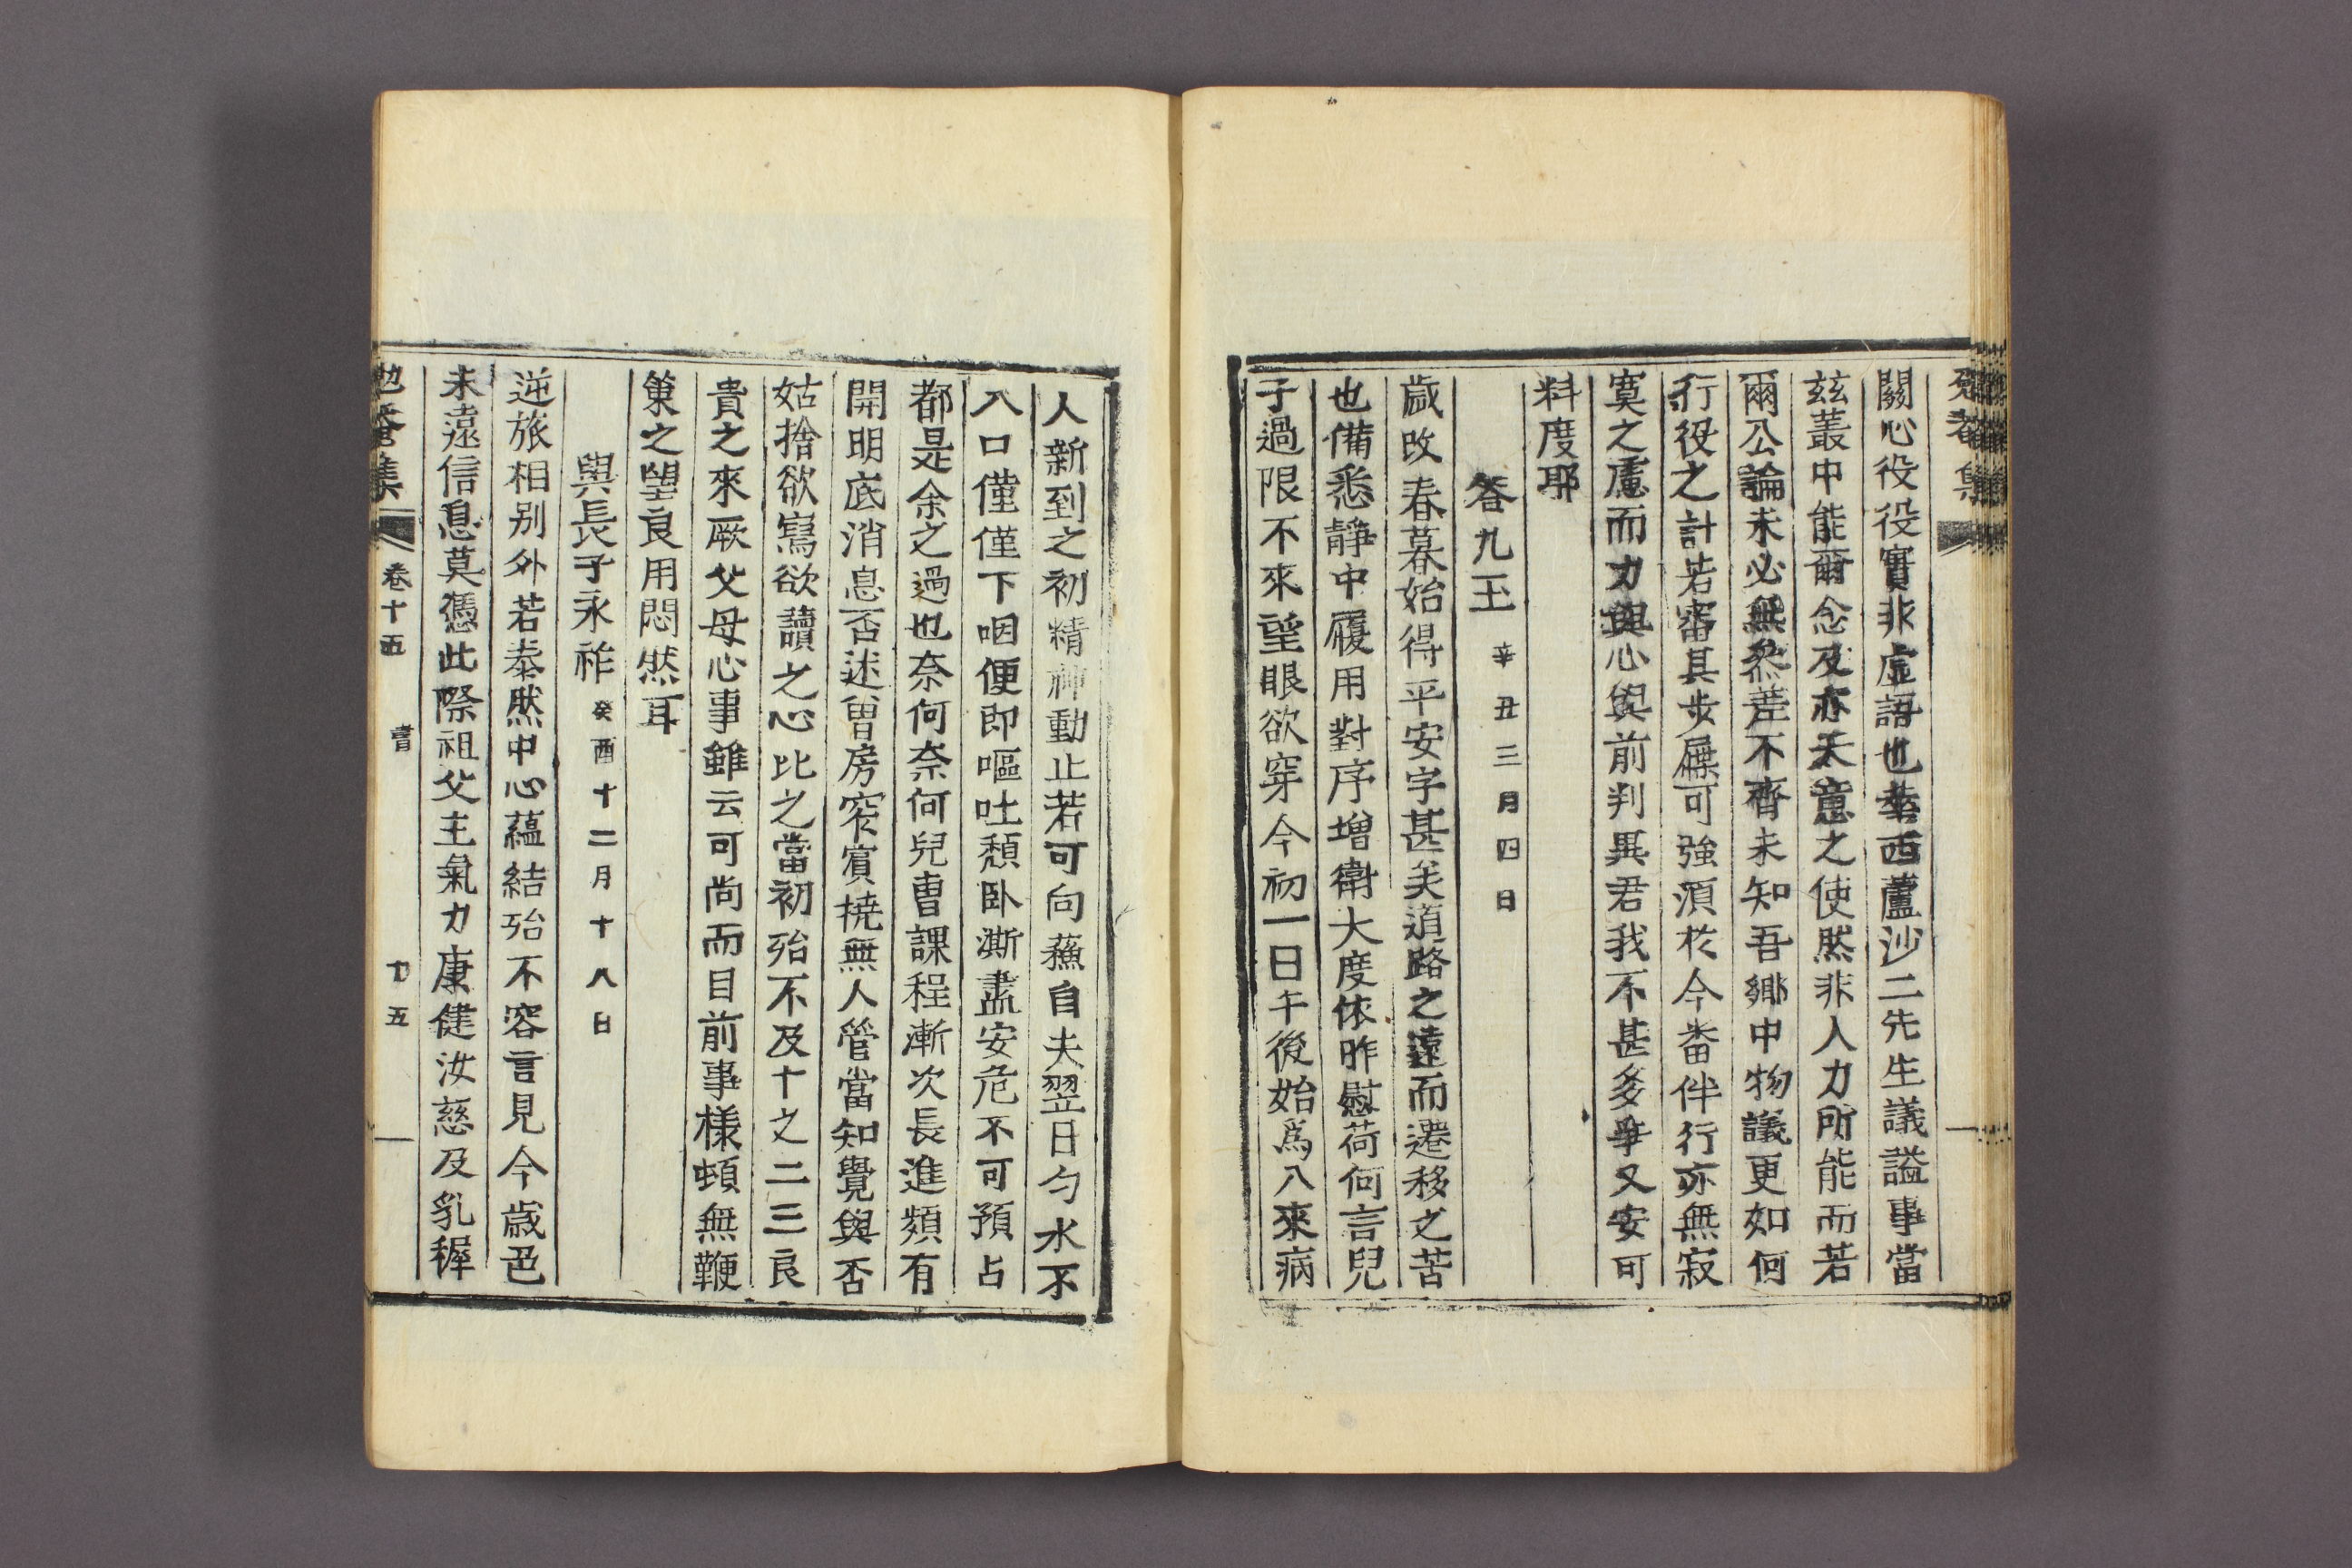 關心役役實非虛語也華西蘆沙二先生議謚事當
玆叢中能爾念及亦天意之使然非人力所能而若
爾公論未必無叅差不齊未知吾鄕中物議更如何
行役之計若審其步屧可強須於今番伴行亦無寂
寞之慮而力與心與前判異君我不甚多爭又安可
料度耶
答九玉 辛丑三月四日
歲改春暮始得平安字甚美道路之遠而遷移之苦
也備悉靜中履用對序增衛大度依昨慰荷何言兒
子過限不來望眼欲穿今初一日午後始爲入來病
人新到之初精神動止若可向蘓自夫翌日勺水不
入口僅僅下咽便卽嘔吐頹臥澌盡安危不可預占
都是余之過也奈何奈何兒曺課程漸次長進頗有
開明底消息否迷曺房窄賓撓無人管當知覺與否
姑捨欲寫欲讀之心比之當初殆不及十之二三良
貴之來厥父母心事雖云可尙而目前事樣頓無鞭
箠之望良用悶然耳
與長子永祚 癸酉十二月十八日
逆旅相別外若泰然中心蘊結殆不容言見今歲色
未遠信息莫憑此際祖父主氣力康健汝慈及乳穉
勉菴集 卷十五 書 十五